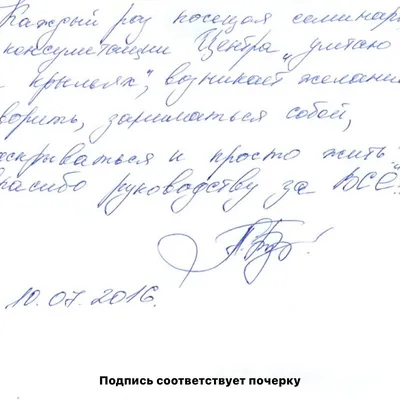 Каждый раз посещая семинар
консультации Центра „читаю
крыльях", возникает желани
ворить, заниматься собой,
аскрываться и просто жить
пасибо руководству за ВСЁ
10.07.2016.
Подпись соответствует почерку